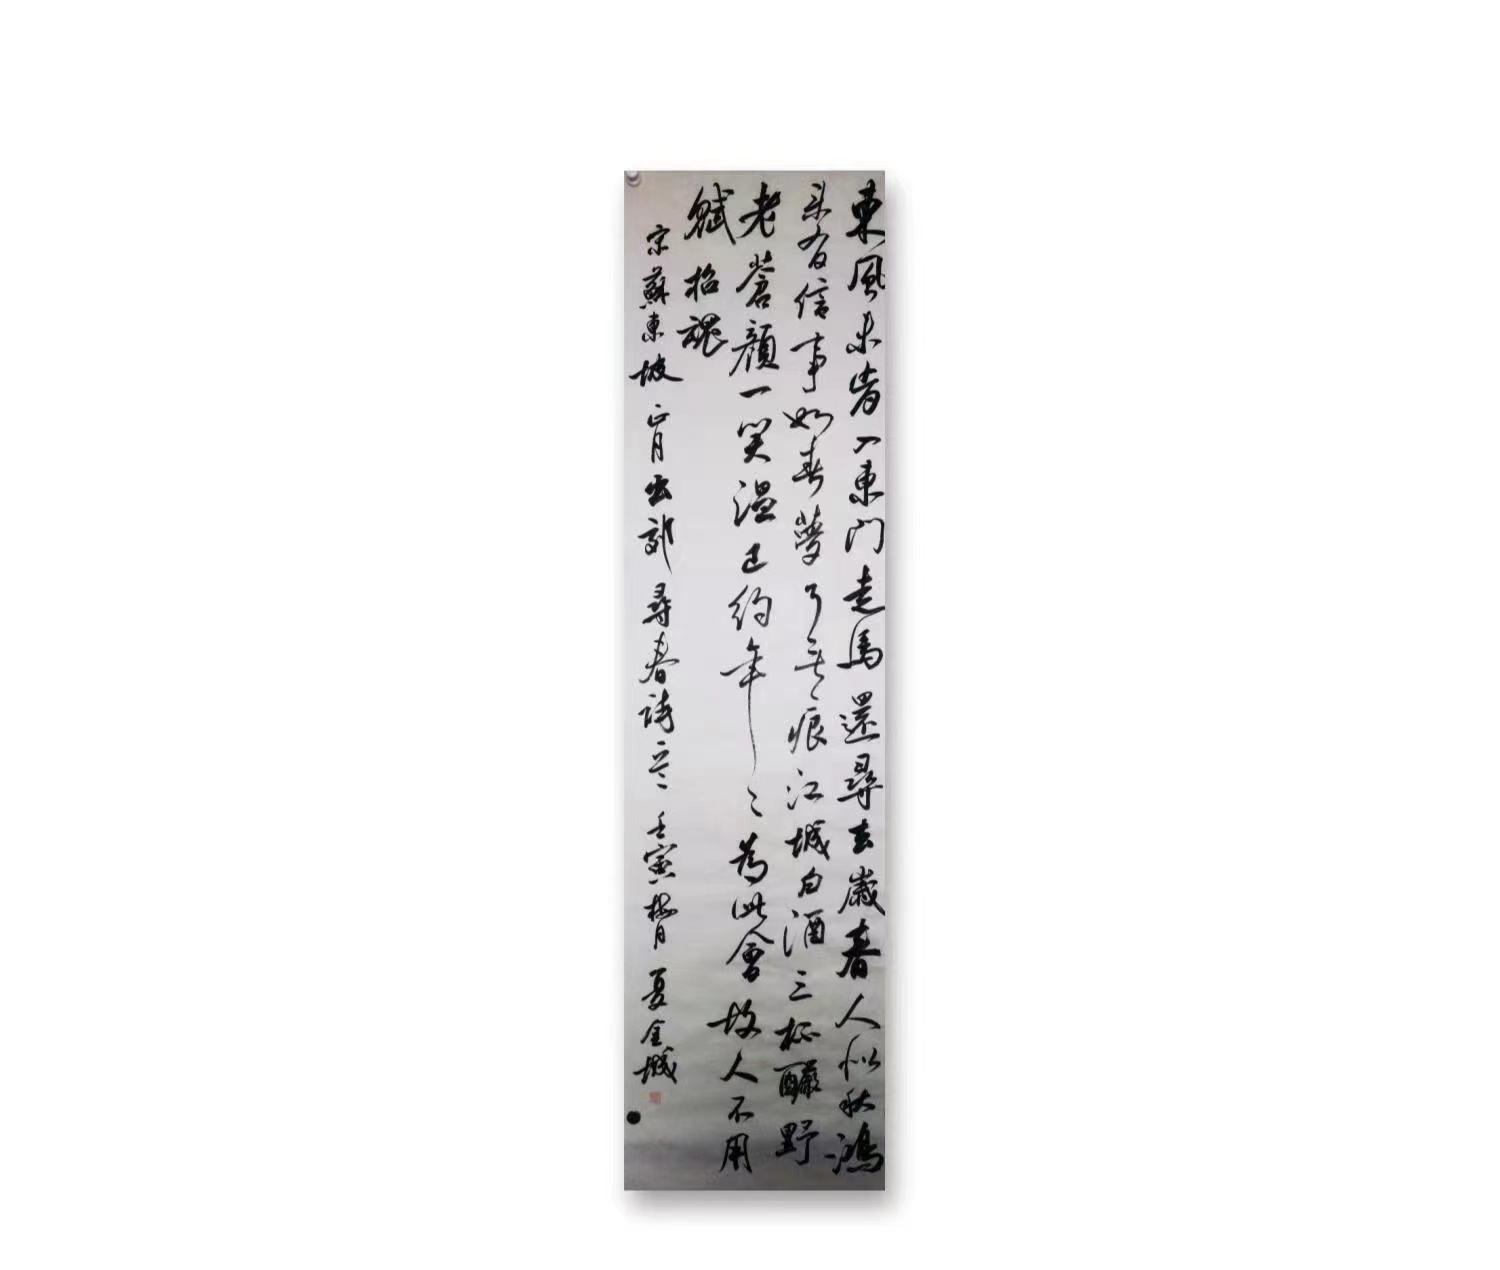 東風未肯入東門走馬還尋去歲春人似秋鴻
来有信事如春夢了無痕江城白酒三杯釅野
老蒼顏一笑溫已約年〻為此會故人不用
賦招魂
宋蘇東坡正月出郊尋春詩一首壬寅梅月夏金城